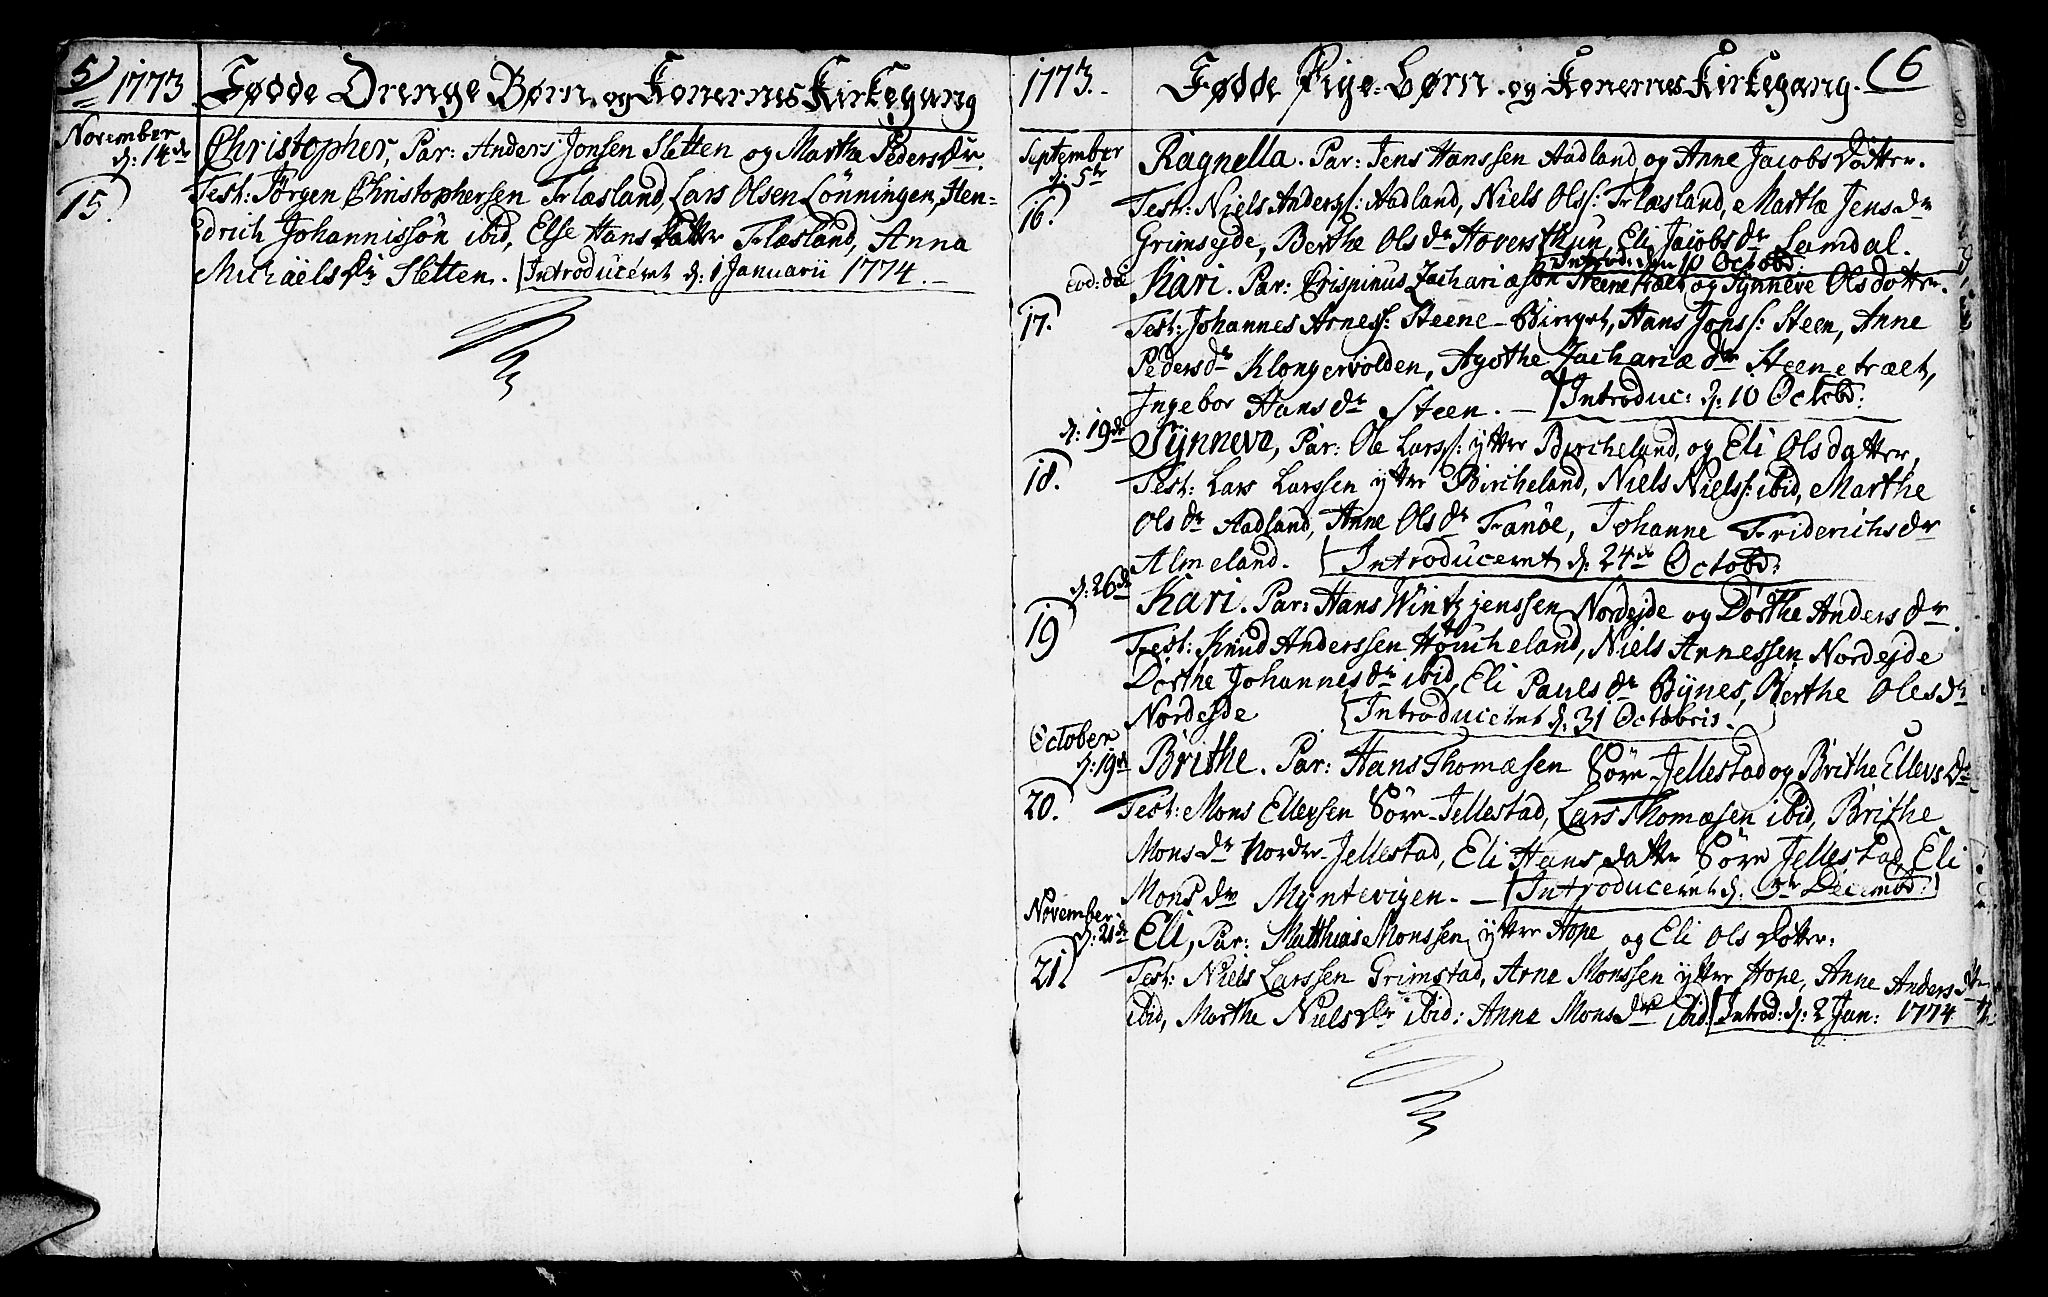 5) 1773 Fødde Drenge Børn, og Konernes Kirkegang
November
d: 14de Christopher, Par: Anders Jonsen Sletten og Marthe Pedersdr.
15. Test: Jörgen Christophersen Flæsland, Lars Olsen Lönningen, Hen-
drich Johannissön ibid, Else Hans Datter Flæsland, Anna
Michäels Dr Sletten. Introduceret d: 1 Januarii 1774.
1773. Fødde Pige-Børn og Konernes Kirkegang. (6
September
d: 5te Ragnella. Par: Jens Hanssen Aadland og Anne Jacobs Dotter.
16. Test: Niels Anderss: Aadland, Niels Ols: Flæsland, Marthe Jensdr
Grimsejde, Berthe Olsdr Hoversthun, Eli Jacobsdr Lamdal.
Introd: den 10 Octobr.
eod: die Kari. Par: Crispinus Zachariæsøn Steenetræet og Synneve Olsdotter.
17. Test: Johannes Arness: Steene-Birget, Hans Jonss: Steen, Anne
Pedersdr Klongervolden, Agothe Zachariædr Steenetræet,
Ingebor Hansdr Steen. – Introduc: d: 10 Octobr:
d: 19de Synneva, Par: Ole Larss: yttre Bircheland, og Eli Olsdatter,
18. Test: Lars Larssen yttre Bircheland, Niels Niels: ibid, Marthe
Olsdr Aadland, Anne Olsdr Fanöe, Johanne Friderichsdr
Almeland. Introduceret d: 24de Octobr:
d: 26de Kari. Par: Hans Wintzjenssen Nordejde og Dorthe Andersdr.
19 Test: Knud Anderssen Høucheland, Niels Arnessen Nordejde
Dorthe Johannesdr ibid, Eli Paulsdr Bÿnes, Berthe Olesdr
Nordejde Introduceret d: 31 Octobris.
October
d: 19de Brithe. Par: Hans Thomæsen Søre Jellestad og Brithe Ellevsdr
20. Test: Mons Ellevsen Søre-Jellestad, Lars Thomæsen ibid, Brithe
Monsdr Nordre-Jellestad, Eli Hans datter Søre Jellestad, Eli
Monsdr Myntevigen. – Introduceret d: Decembr:
November
d: 21de Eli, Par: Matthias Monssen yttre Hope og Eli Ols Dotter.
21. Test: Niels Larssen Grimstad, Arne Monssen yttre Hope, Anne Andersdr
ibid, Marthe Nielsdr ibid: Anna Monsdr ibid. Introd: d: 2 Jan: 1774